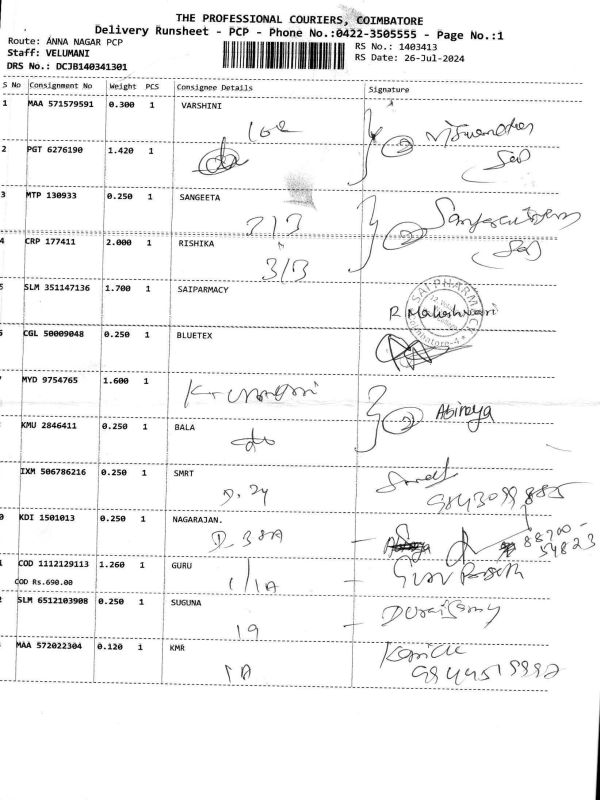 THE PROFESSIONAL COURIERS, COIMBATORE
Delivery Runsheet - PCP - Phone No.:0422-3505555 - Page No.:1
Route: ANNA NAGAR PCP
RS No.: 1403413
Staff: VELUMANI
RS Date: 26-Jul-2024
DRS No.: DCJB140341301
S No Consignment No Weight PCS Consignee Details Signature
1 MAA 571579591 0.300 1 VARSHINI
2 PGT 6276190 1.420 1
2
3 MTP 130933 0.250 1 SANGEETA
313
2
4 CRP 177411 2.000 1 RISHIKA
3/3
5 SLM 351147136 1.700 1 SAIPARMACY
SAI PHARMACY
R Maheshwari
CGL 50009048 0.250 1 BLUETEX
MYD 9754765 1.600 1
2 Abinaya
KMU 2846411 0.250 1 BALA
IXM 506786216 0.250 1 SMRT
D. 24
9843099885
0 KDI 1501013 0.250 1 NAGARAJAN.
D. 38A
88700-
54823
1 COD 1112129113 1.260 1 GURU
COD Rs.690.00
1/1A
2 SLM 6512103908 0.250 1 SUGUNA
19 - Duraisamy
MAA 572022304 0.120 1 KMR
1A